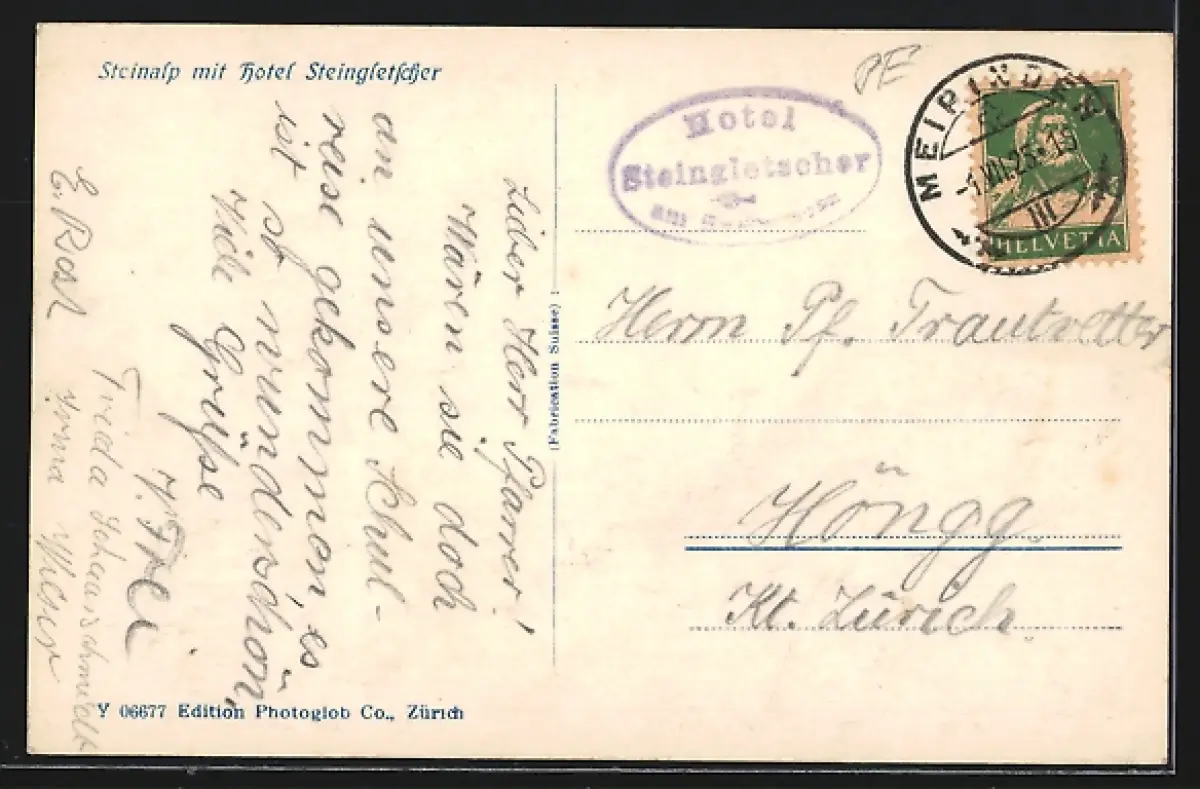 Steinalp mit Hotel Steingletscher
Lieber Herr Pfarrer!
Wären sie doch
an unsere Schul-
reise gekommen, es
ist so wunderschön,
Viele Grüsse
Frieda
E. Rosl
Irma
Hotel
Steingletscher
am
MEIRINGEN
-1.VII.25-15
III
HELVETIA
Herrn Pf. Trautvetter
Höngg
Kt. Zürich
(Fabrication Suisse)
Y 06677 Edition Photoglob Co., Zürich